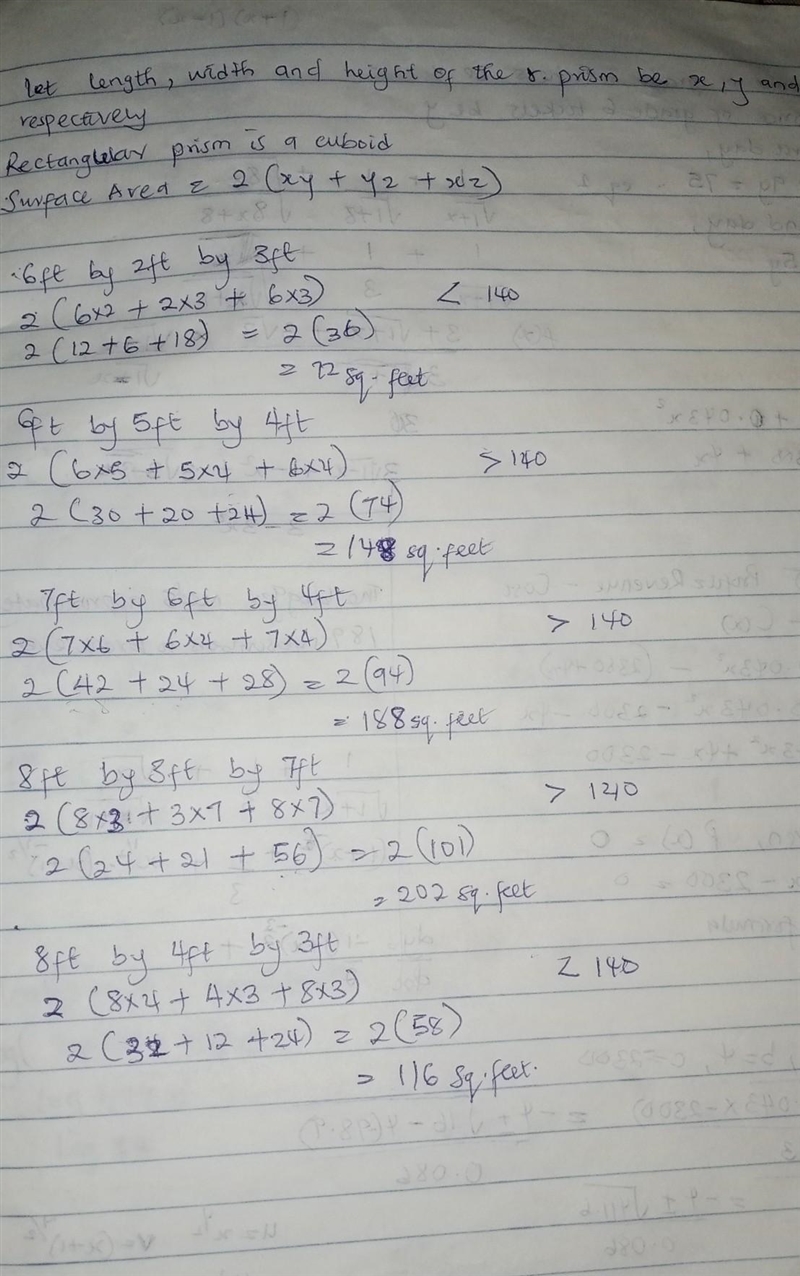 let length, width and height of the r. prism be x, y and
respectively
Rectangular prism is a cuboid
Surface Area = 2 (xy + yz + xz)
6ft by 2ft by 3ft
2 (6x2 + 2x3 + 6x3) < 140
2 (12 + 6 + 18) = 2 (36)
= 72 sq. feet
6ft by 5ft by 4ft
2 (6x5 + 5x4 + 6x4) > 140
2 (30 + 20 + 24) = 2 (74)
= 148 sq. feet
7ft by 6ft by 4ft
2 (7x6 + 6x4 + 7x4) > 140
2 (42 + 24 + 28) = 2 (94)
= 188 sq. feet
8ft by 3ft by 7ft
2 (8x3 + 3x7 + 8x7) > 140
2 (24 + 21 + 56) = 2 (101)
= 202 sq. feet
8ft by 4ft by 3ft
2 (8x4 + 4x3 + 8x3) < 140
2 (32 + 12 + 24) = 2 (58)
= 116 sq. feet.